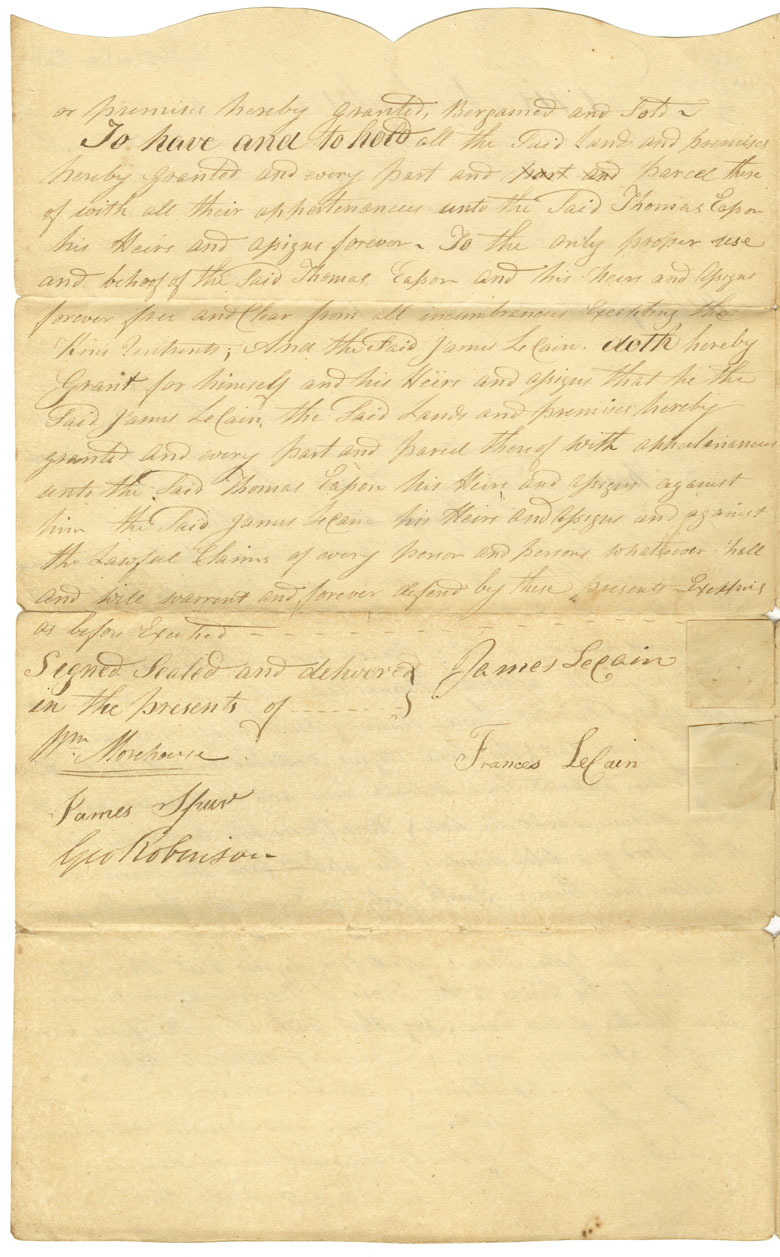 or premises hereby granted, Bergained and Sold ~
To have and to hold all the Said Lands and premises
hereby granted and every part and part and parcel there
of with all their appertenances unto the Said Thomas Eason
his Heirs and assigns forever ~ To the only proper use
and behoof of the Said Thomas Eason and his heirs and assigns
forever free and Clear from all incumbrances Excepting the
Kins Quitrents; And the Said James LeCain doth hereby
Grant for himself and his Heirs and assigns that he the
Said James LeCain, the Said Lands and premises hereby
granted and every part and parcel thereof with
unto the Said Thomas Eason his Heirs and assigns against
him the Said James LeCain his Heirs and assigns and against
the Lawful Claims of every person and persons whatsoever Shall
and will warrent and forever defend by these presents
as before
Segned Sealed and delivered } James LeCain
in the presents of
Wm. Morehouse
Frances LeCain
James Spurr
Geo Robinson